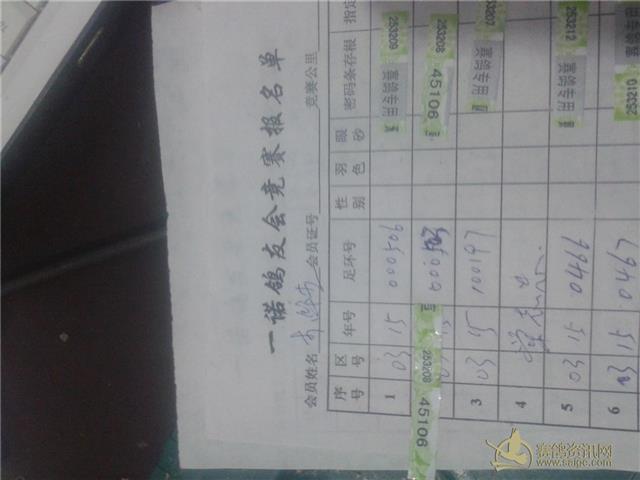 一诺鸽友会竞赛报名单
会员姓名 会员证号 竞赛公里
序号 区号 年号 足环号 性别 羽色 眼砂 密码条存根 指定
1 03 15 000506 253209 赛鸽专用
253208 45106 253208 45106
3 03 15 100197 赛鸽专用
4
5 03 15 0466 253212 赛鸽专用
6 03 15 0467 253210
赛鸽资讯网
www.saige.com